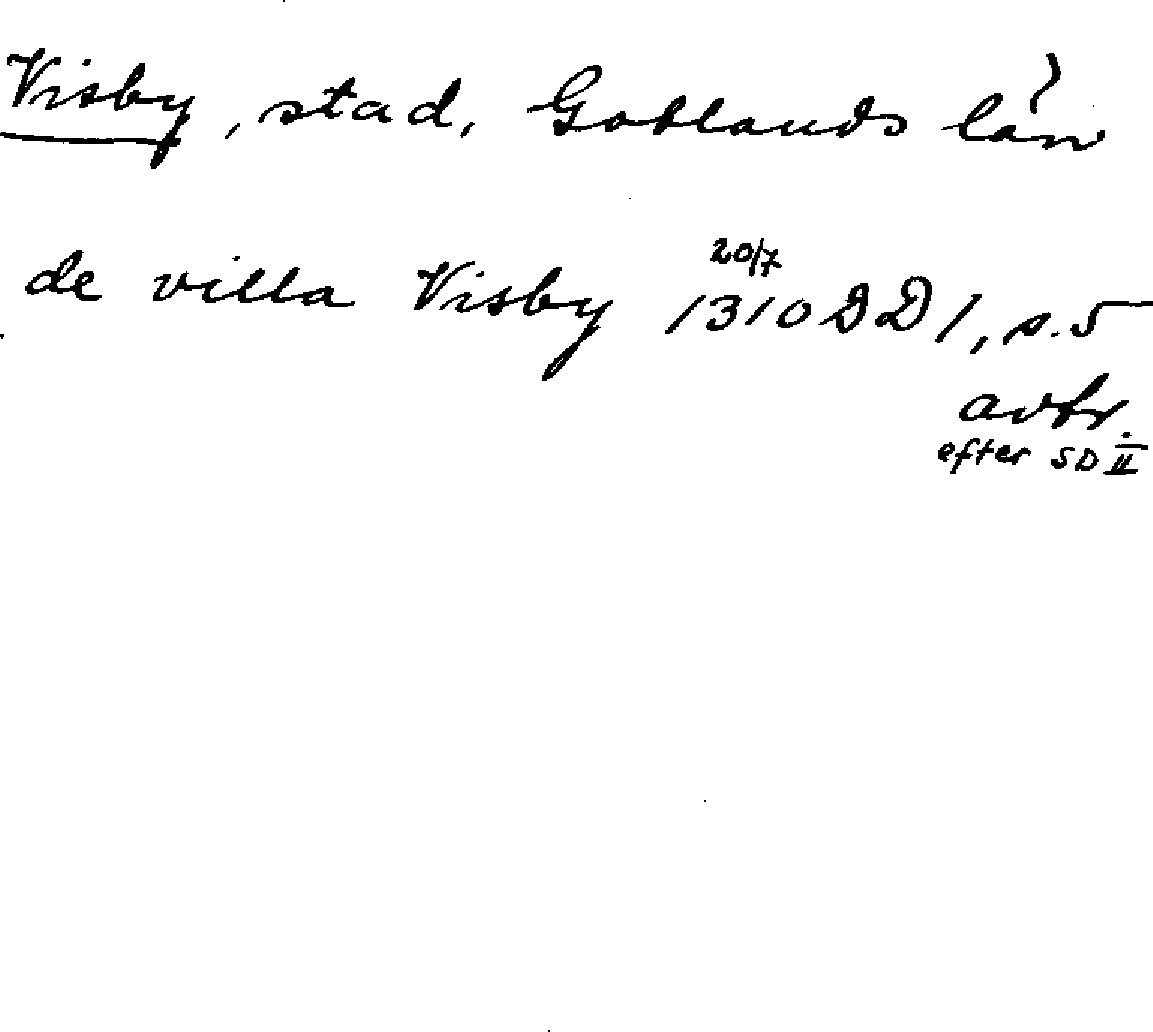 Visby, stad, Gotlands län
de villa Visby 20/7 1310 DD 1, s. 5
avtr.
efter SD II